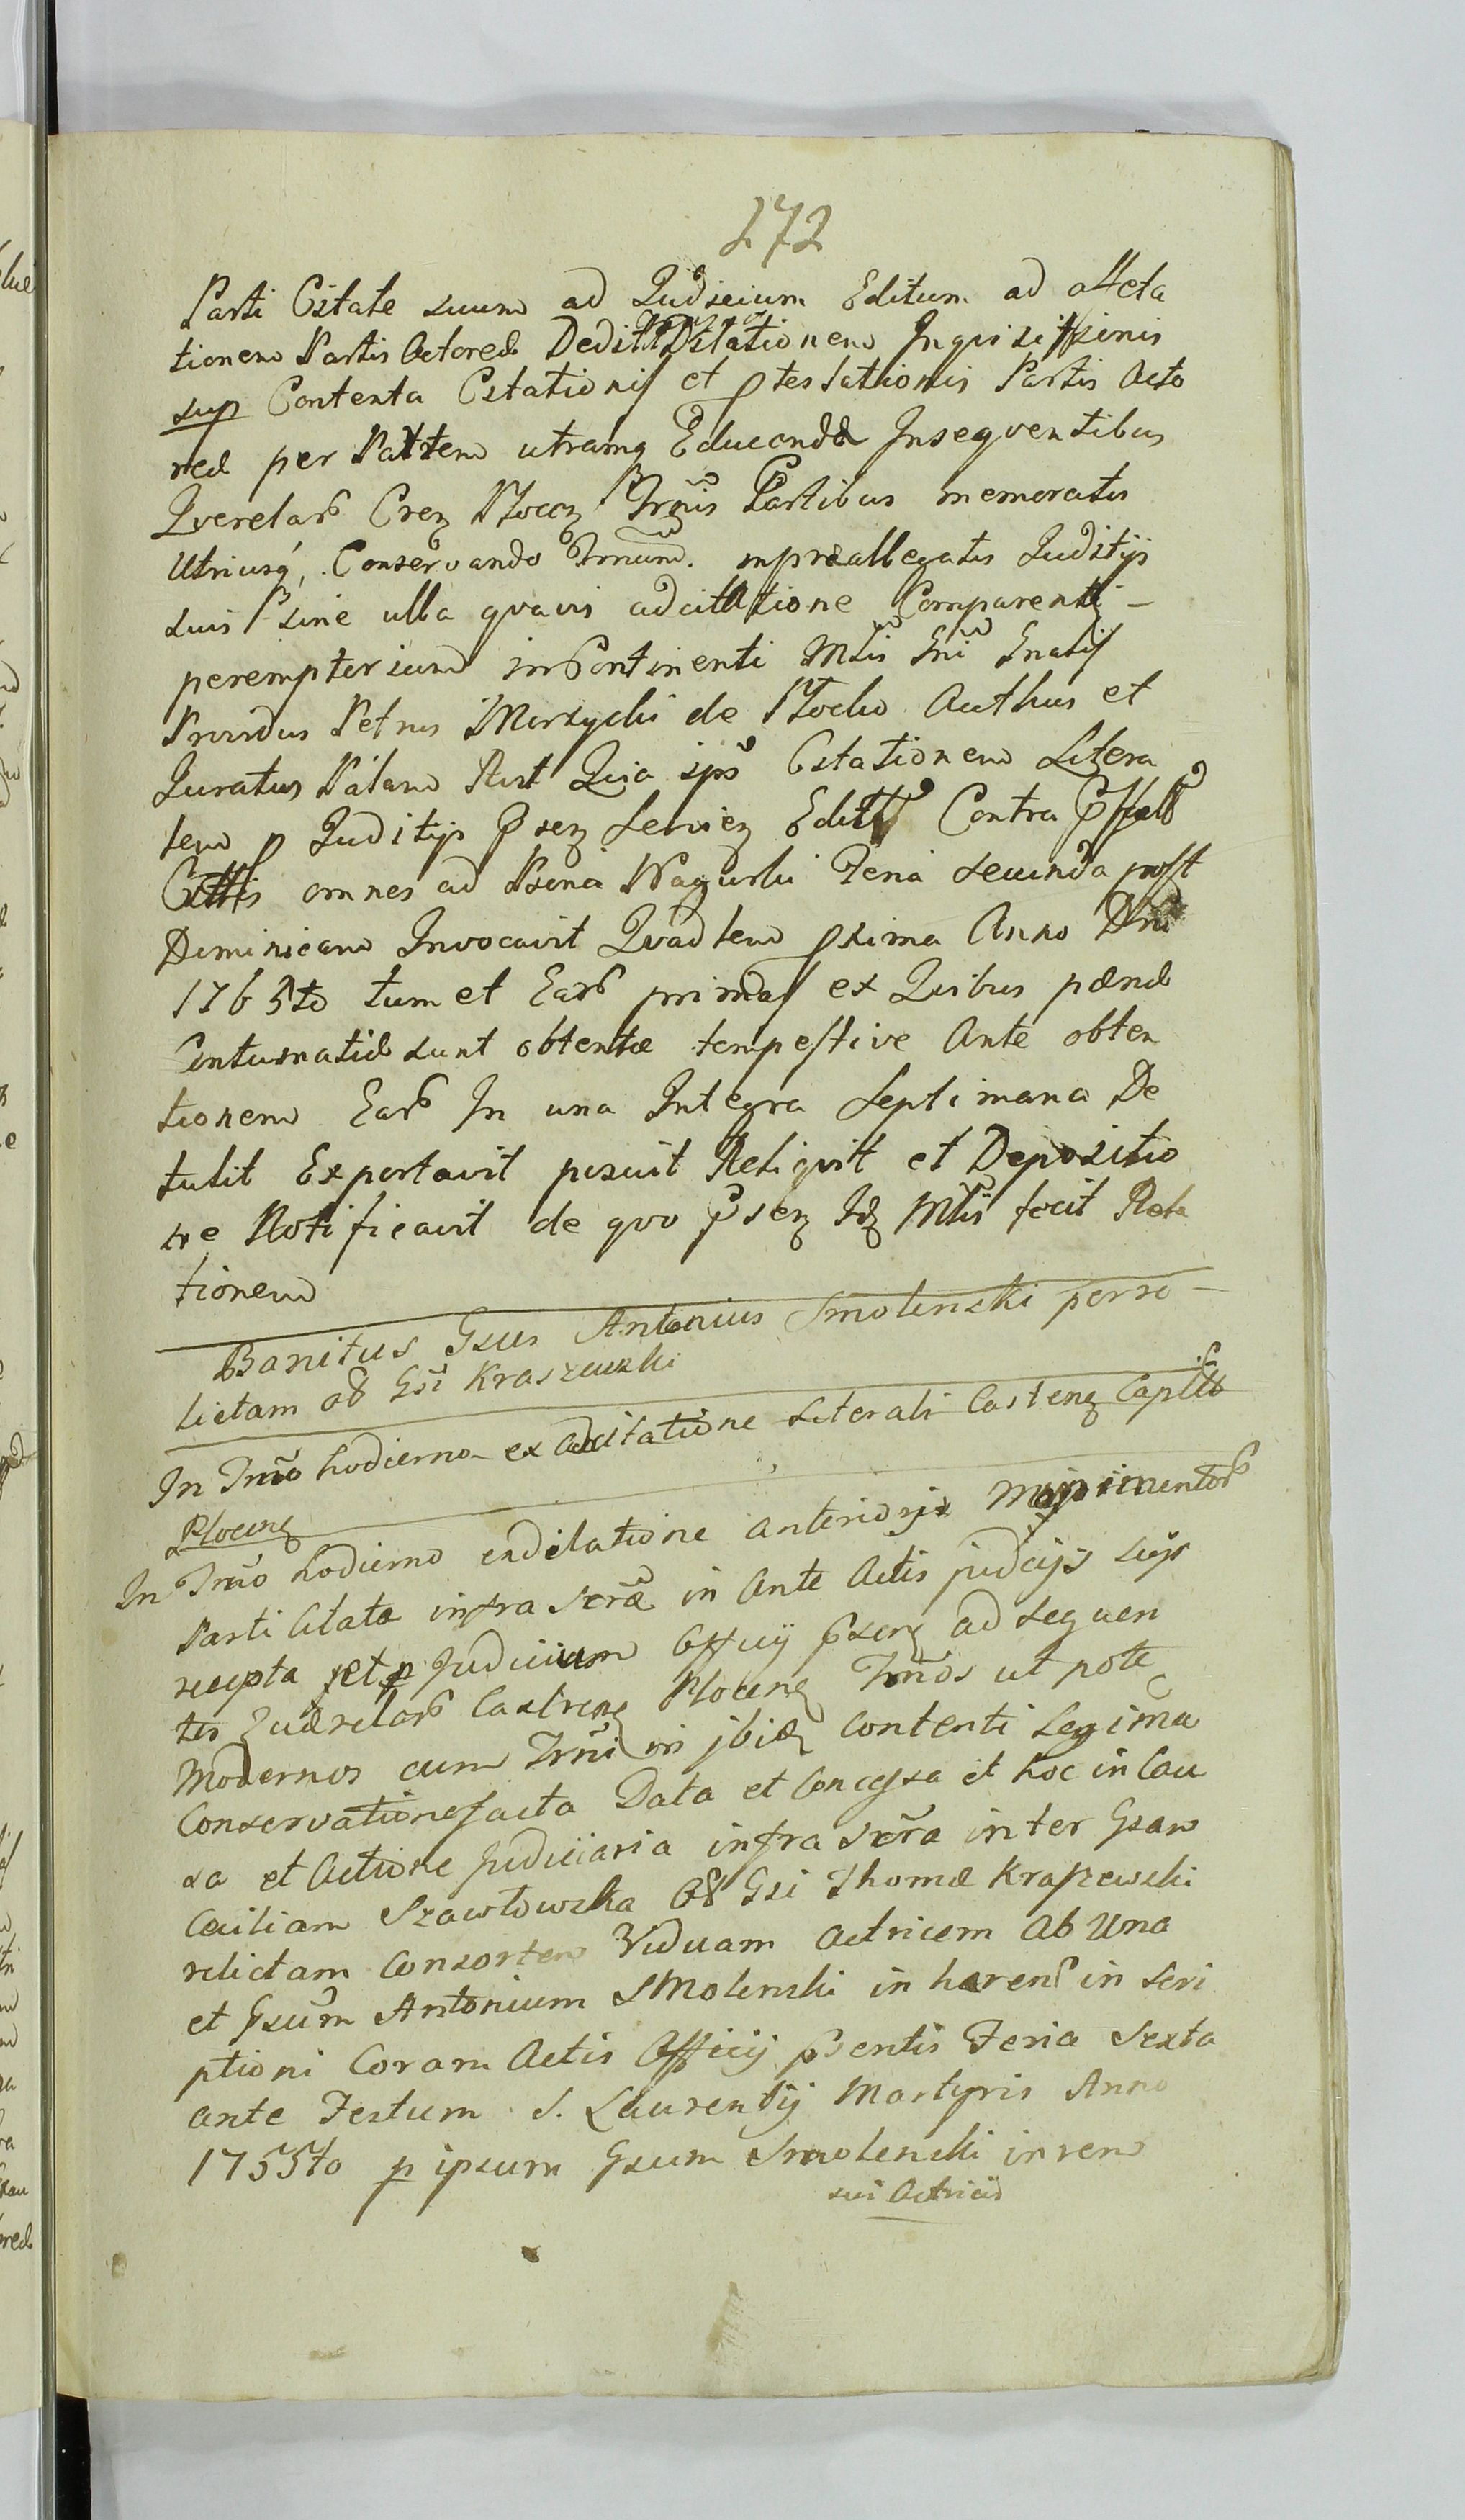 272
Parti Citatæ suum ad Judicium Editum ad affecta
tionem Partis Actoreæ Dedit Dilationem Inquisitionis
sup Contenta Citationis et ptestationis Partis Acto
reæ per Partem utramq Educendæ Insequentibus
Querelar Cren Plocen Trnis Partibus memoratis
Utriusq, Conservando Trnum. inpræallegatis Juditijs
suis sine ulla quavis adcitatione Comparenti –
peremptorium incontinenti Mtis Gni Gnalis
Providus Petrus Morzycki de Plocko Authus et
Juratus Palam Rect Quia ipse Citationem Litera
lem p Juditijs Psen Servien Edit Contra
Cittis omnes ad Nagurki Feria secunda post
Dominicam Invocavit Quadlem pxima Anno Dni
1765to tum et Ear primas ex Quibus pænæ
Contumatiæ sunt obtentæ tempestive Ante obten
tionem Ear In una Integra Septimana De
tulit Exportavit posuit Reliquit et Depositio
ne Notificavit de quo Psen Idz Mtis fecit Rela
tionem
Banitus Gsus Antonius Smolenski per re –
lictam o8 Gsi Kraszewski
In Trno hodierno ex adcitatione Literali Castren Capitlb
Plocen
In Trno hodierno exdilatione anterioris Munimentor
Parti Citatæ infra scræ in Ante Actis judicijs suis
recepta et p Judicium Officij psen ad sequen
tes Quærelar Castren Plocen Trnos ut pote
Modernos cum Trni in ibidz contenti Legima
Conservatione facta Data et Concessa et hoc in Cau
sa et Actione Judiciaria infra scra inter Gsam
Ceciliam Szawłowska O8 Gsi Thomæ Kraszewski
relictam Consortem Viduam Actricem Ab Una
et Gsum Antonium Smolenski in haren in scri
ptioni Coram Actis Officij psentis Feria Sexta
ante Festum S. Laurentij Martyris Anno
1755to p ipsum Gsum Smolenski in rem
sui Actricis